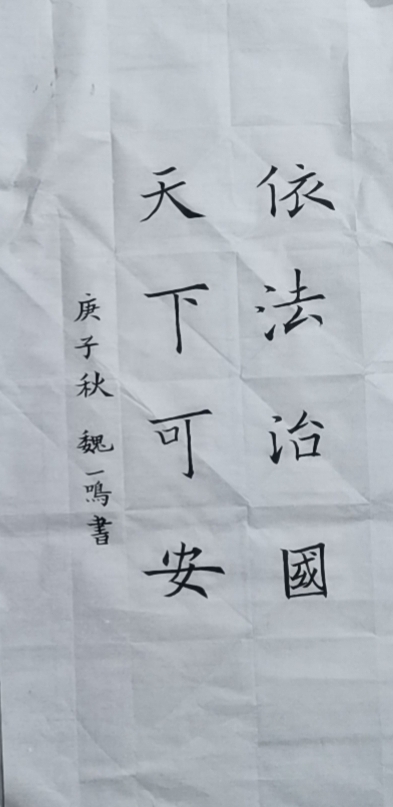 依法治國
天下可安
庚子秋 魏一鳴書